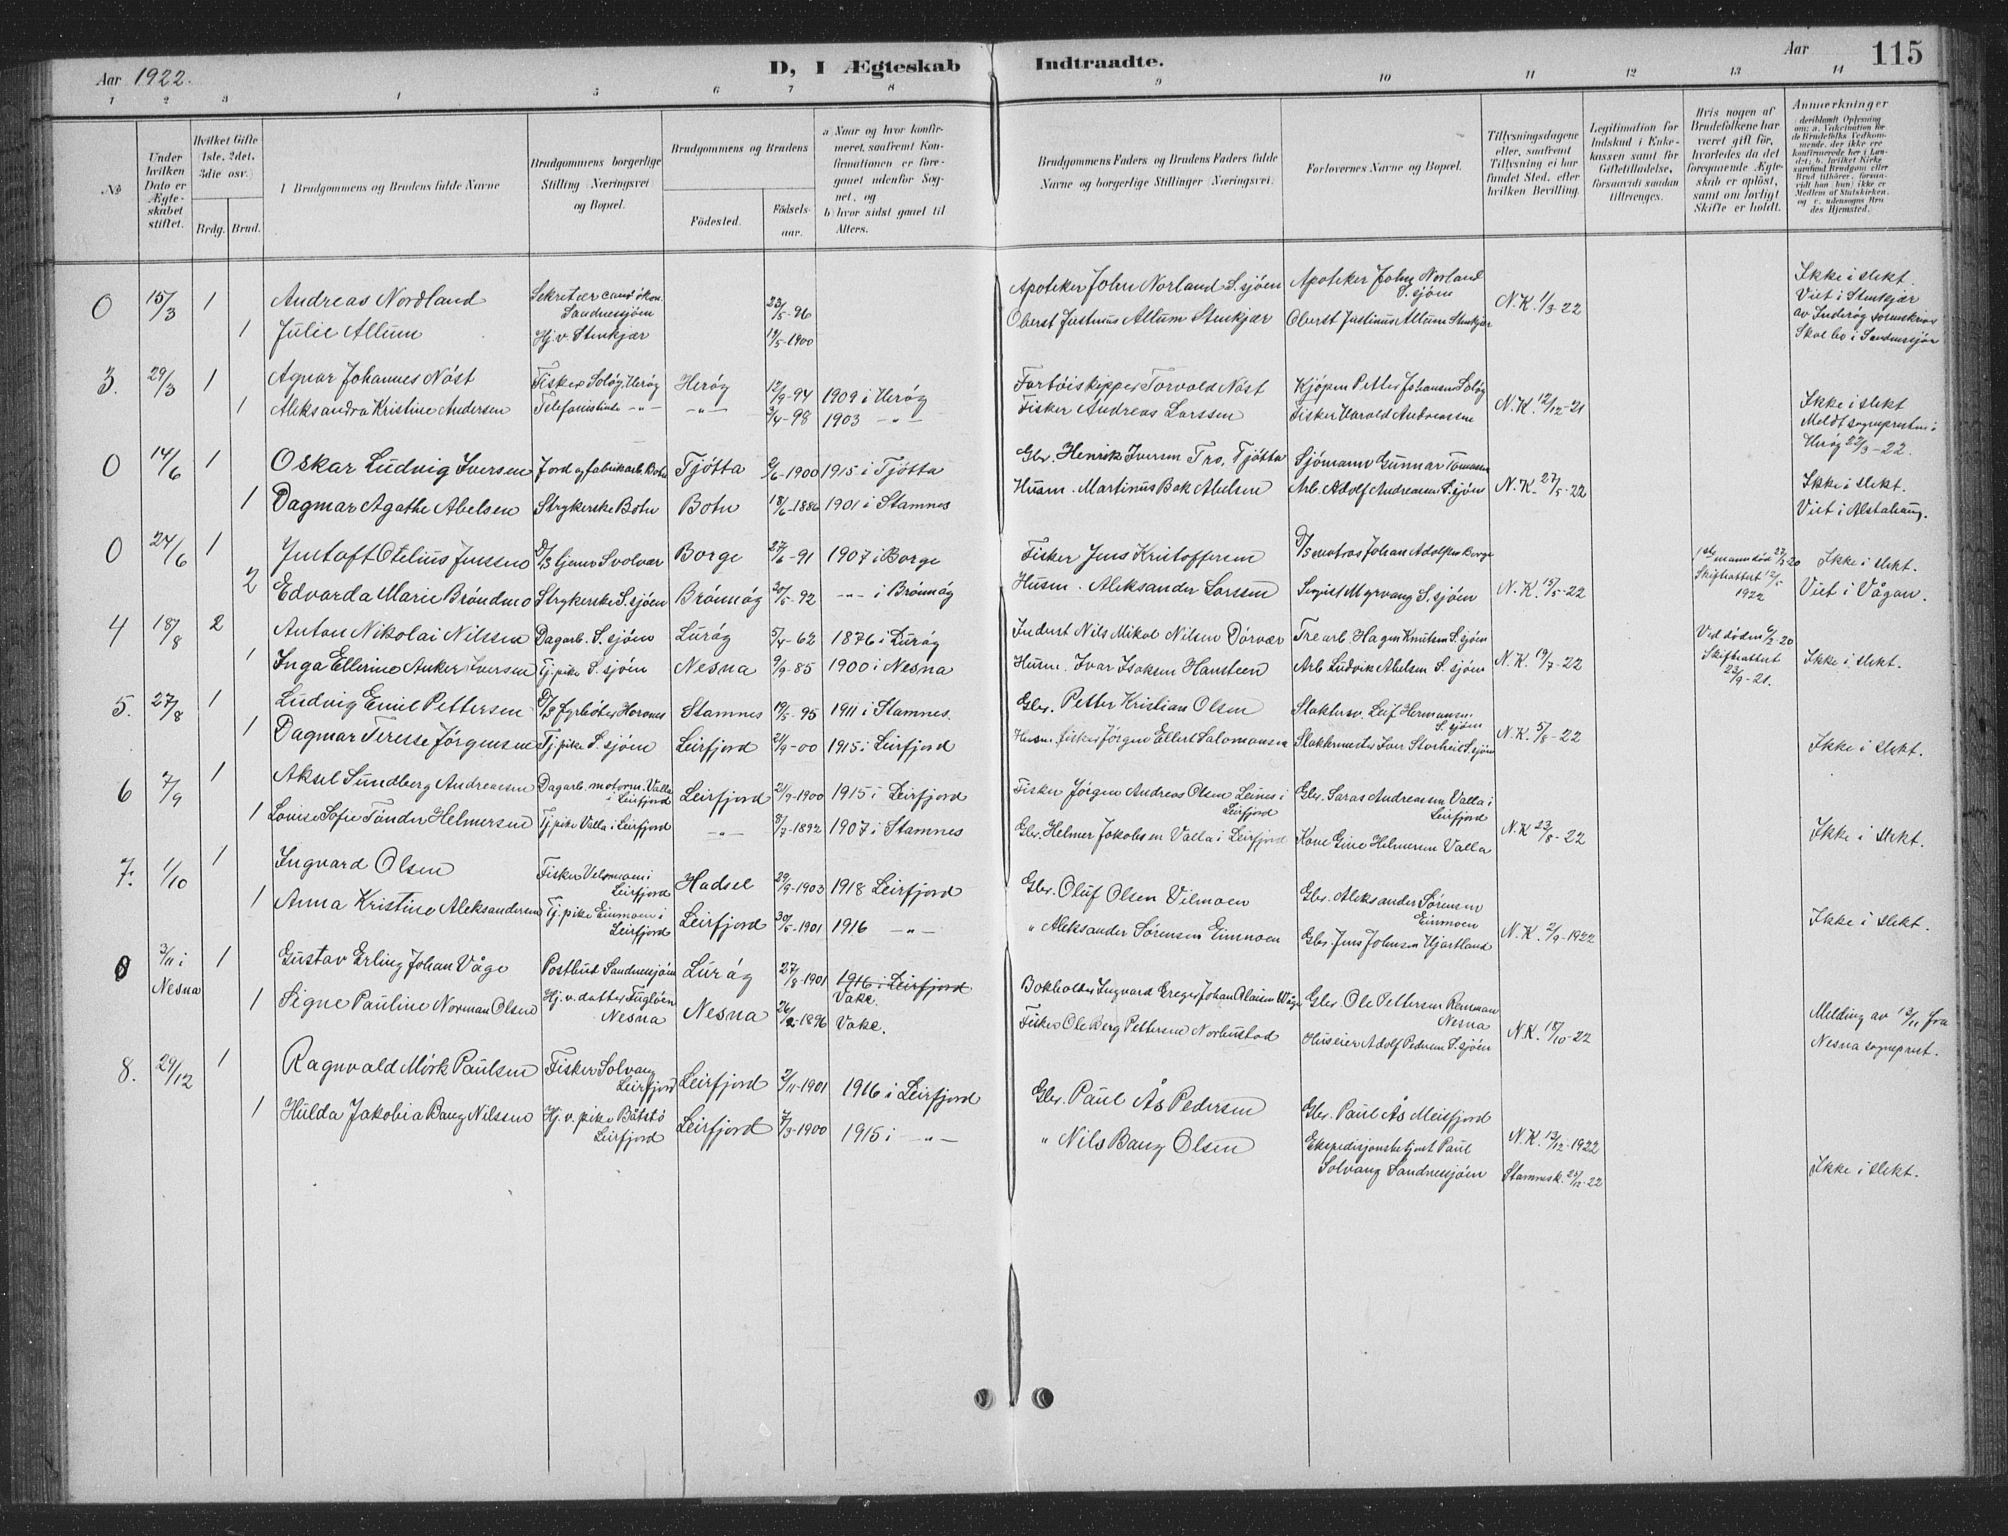 Aar 1922.
D, I Ægteskab Indtraadte.
Aar 115
1 2 3 4 5 6 7 8 9 10 11 12 13 14
No
Under hvilken Dato er Ægteskabet stiftet.
Hvilket Gifte 1ste, 2det, 3die osv.
Brdg. Brud.
Brudgommens og Brudens fulde Navne
Brudgommens borgerlige Stilling (Næringsvei og Bopæl.
Brudgommens og Brudens
Födested. Födsels-aar.
a Naar og hvor konfirmeret, saafremt Konfirmationen er foregaaet udenfor Sognet, og
b hvor sidst gaaet til Alters.
Brudgommens Faders og Brudens Faders fulde Navne og borgerlige Stillinger Næringsvei.
Forlovernes Navne og Bopæl.
Tillysningsdagene eller, saafremt Tillysning ei har fundet Sted, efter hvilken Bevilling.
Legitimation for Indskud i Enkekassen samt for Giftetilladelse, forsaavidt saadan tiltrænges.
Hvis nogen af Brudefolkene har været gift før, hvorledes da det foregaaende Ægteskab er oplöst, samt om lovligt Skifte er holdt.
Anmerkninger
0 15/3 1 Andreas Nordland Sekretær cand. økon. Sandnessjøen 23/5-96 Apoteker John Norland S.sjöen Apoteker John Norland S.sjöen N.K. 1/3-22 Ikke i slekt.
1 Julie Allum Hj.v. Stenkjær 14/5-1900 Oberst Justinus Allum Stenkjær Oberst Justinus Allum Stenkjær Viet i Stenkjær
Skal bo i Sandnessjøen
3. 29/3 1 Agnar Johannes Nöst Fisker Heröy Heröy 12/9-94 1909 i Heröy Fartöiskipper Torvold Nöst Kjöpm Petter Johansen N.K. 12/12-21 Ikke i slekt
1 Aleksandra Kristine Andersen Telefonistinde -"- -"- 3/4-98 1903 -"- Fisker Andreas Larssen Fisker Harald Andreassen Meldt sognepresten i Heröy 22/3-22.
0 14/6 1 Oskar Ludvig Iversen Jord og fabrikarb. Botn Tjötta 2/6-1900 1915 i Tjötta Gbr. Henrik Iversen Tro, Tjötta Sjömann Gunnar N.K. 27/5-22 Ikke i slekt.
1 Dagmar Agathe Abelsen Strykerske Botn Botn 18/6-1886 1901 i Stamnes Husm. Martinus Bok Abelsen Arb. Adolf Andreassen S.sjöen Viet i Alstahaug.
0 24/6 1 Otelius Jenssen Svolvær Borge 27/6-91 1907 i Borge Fisker Jens Kristoffersen D/S matros Johan Adolfsen Borge 1ste mann död 27/2-20 Skifteattest 12/5 1922 Ikke i slekt.
2 Edvarda Marie Bröndmo Strykerske S.sjöen Brönnöy 20/5-92 -"- i Brönnöy Husm. Aleksander Larssen Myrvang S.sjöen N.K. 15/5-22 Viet i Vågan.
4 18/8 2 Anton Nikolai Nilssen Dagarb. S.sjöen Luröy 5/4-62 1876 i Luröy Indust Nils Mikal Nilsen Dörvær Trearb. Hagen Knutsen S.sjöen N.K. 19/7-22 Ved döden 6/2-20 Skifteattest 23/9-21. Ikke i slekt.
1 Inga Ellerine Anker Iversen Tj.pike S.sjöen Nesna 9/9-85 1900 i Nesna Husm. Ivar Isaksen Hansteen Arb Ludvik Abelsen S.sjöen
5. 27/8 1 Ludvig Emil Pettersen D/S fyrböter Stamnes 19/5-95 1911 i Stamnes. Gbr. Petter Kristian Olsen Slaktersv. Leif Hermansen S.sjöen N.K. 5/8-22 Ikke i slekt.
1 Dagmar Terese Jörgensen Tj.pike S.sjöen Leirfjord 21/9-00 1915 i Leirfjord Husm. fisker Jörgen Ellert Salomonsen Slaktermester Iver Storheis S.sjöen
6 7/9 1 Aksel Sundberg Andreassen Dagarb. motorm. Valla i Leirfjord Leirfjord 21/9-1900 1915 i Leirfjord Fisker Jörgen Andreas Olsen Leines i Leirfjord Gbr. Saras Andreassen Valla i Leirfjord N.K. 23/8-22 Ikke i slekt.
1 Lovise Sofie Tönder Helmersen Tj.pike Valla i Leirfjord -"- 8/7-1892 1907 i Stamnes Gbr. Helmer Jakobsen Valla i Leirfjord Kone Gine Helmersen Valla
7. 1/10 1 Ingvard Olsen Fisker Velomoen i Leirfjord Hadsel 29/9-1903 1918 Leirfjord Gbr. Oluf Olsen Vilmoen Gbr. Aleksander Sörensen Einmoen N.K. 2/9-1922 Ikke i slekt.
1 Anna Kristine Aleksandersen Tj.pike Einmoen i Leirfjord Leirfjord 30/5-1901 1916 -"- " Aleksander Sörensen Einmoen Gbr. Jens Johnsen Hjartland
0 3/11 i Nesna 1 Gustav Erling Johan Våge Postbud Sandnessjöen Luröy 27/8-1901 1916 i Leirfjord Vake. Bokholder Ingvard Greger Johan Våge Gbr. Ole Pettersen Nesna N.K. 18/10-22 Melding av 12/11 fra
1 Signe Pauline Norman Olsen Hj.v. datter Fuglöen Nesna Nesna 26/2-1896 Vake. Fisker Ole Berg Pettersen Huseier Adolf Pedersen S.sjöen Nesna sogneprest.
8. 29/12 1 Ragnvald Mörk Paulsen Fisker Solvang Leirfjord Leirfjord 2/11-1901 1916 i Leirfjord Gbr. Paul Ås Pedersen Gbr. Paul Ås Meisfjord N.K. 13/12-1922
1 Hulda Jakobia Bang Nilssen Hj.v. pike Båtstö Leirfjord Leirfjord 7/3-1900 1915 i -"- " Nils Bang Olsen Ekspedisjonsbetjent Paul Solvang Sandnessjöen Stamnes k. 25/12-22 Ikke i slekt.